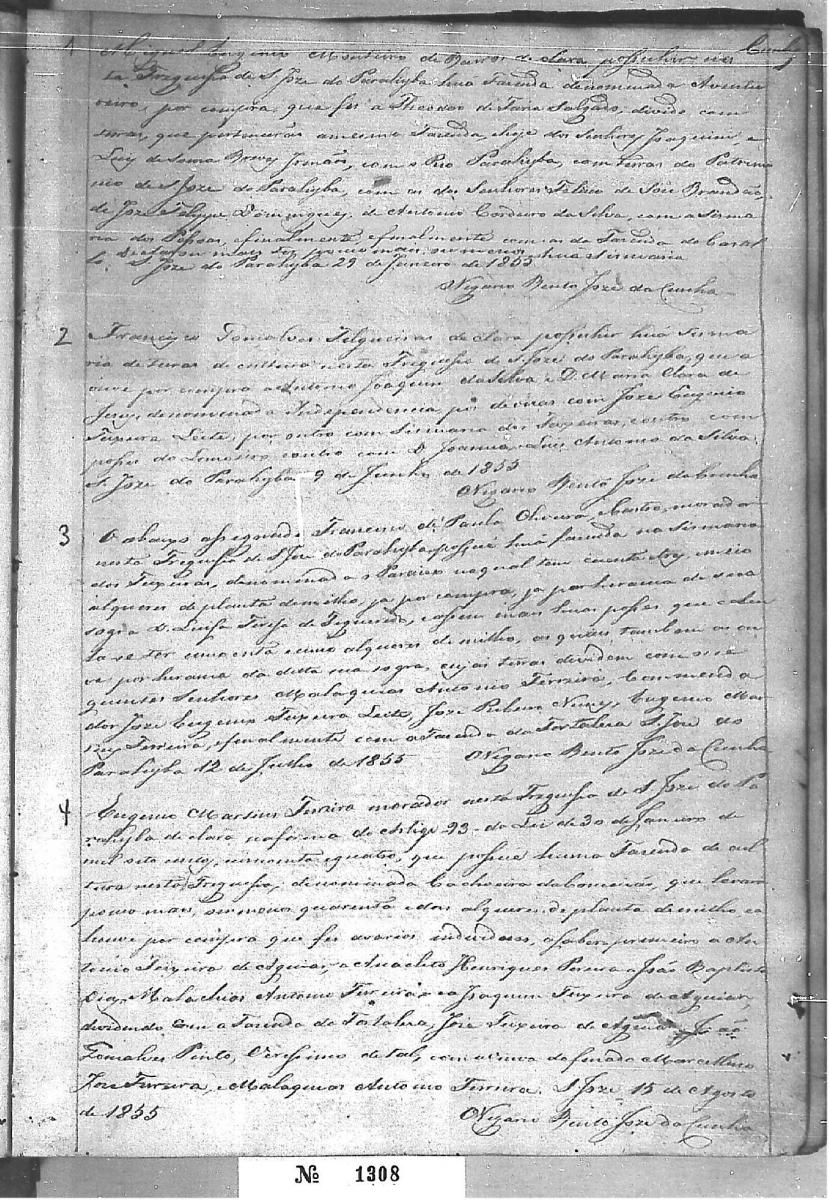 Cunha
1
Miguel Eugenio Monteiro de Barros declara possuhir nes
ta Freguesia de S. Joze do Parahyba hua Fazenda denominada Aventu
reiro, por compra, que fez a Theodoro de Faria Salgado, divide com
terras, que pertencerão amesma Fazenda, hoje dos Senhores Joaquim, e
Luiz de Souza Breves Irmãos, com o Rio Parahyba, com terras do Patrimo
nio de S. Joze do Parahyba, com as dos Senhores Felicio de Brandão,
de Joze Felippe Domingues, de Antonio Cordeiro da Silva, com a Sesma
ria dos finalmente, efinalmente com as da Fazenda do
pouco mais, ou menos hua Sesmaria
S. Joze do Parahyba 29 de Janeiro de 1855
O Vigario Bento Joze da Cunha
2
Francisco Gonsalves Filgueiras declara possuhir hua Sesma
ria de terras de cultura nesta Freguesia de S. Joze do Parahyba, que a
ouve por compra a Antonio Joaquim da Silva e D. Maria Clara de
Jesus, denominada Independencia por devizas com Joze Eugenio
Teixeira Leite, por outro com Sesmaria dos Teixeiras, eoutro com
posses do Loureiro eoutro com D. Joanna, Luis Antonio da Silva.
S. Joze do Parahyba 9 de Junho de 1855
O Vigario Bento Joze da Cunha
3
O abaixo assignado Francisco de Paula Oliveira Castro, morador
nesta Freguesia de S. Joze do Parahyba, possue huã fazenda na Sismaria
dos Teixeiras, denominada o Paraizo naqual tem cuenta e meio
alqueres de planta demilho, ja por compra, ja por herança de sua
sogra D. Luisa Tereza de Figueredo, epossue mais huas posses que calcu
la-se ter umcoenta e cinco alqueres de milho, as quais tambem as ou
ve por herança da ditta sua sogra, cujas terras dividem com os se
guintes Senhores Malaquias Antonio Ferreira, Commenda
dor Joze Eugenio Teixeira Leite, Joze Ribeiro Nunes, Eugenio Mar
tins Ferreira, efinalmente com a Fazenda da Fortaleza S. Joze do
Parahyba 12 de Julho de 1855 O Vigario Bento Joze da Cunha
4
Eugenio Martins Ferreira morador nesta Freguesia de S. Joze do Pa
rahyba declara na fórma do Artigo 93 da Lei de 30 de Janeiro de
mil oito centos, cincoenta equatro, que possue huma Fazenda de cul
tura nesta Freguesia, denominada Cachoeira, que levara
pouco mais, ou menos quarenta edois alqueres de planta de milho, ea
houve por compra que fes avarios individuos, asaber primeiro a An
tonio Teixeira de Aguiar, a Anacleto Henriques Pereira a João Baptista
Dias, Malachias Antonio Ferreira, e a Joaquim Teixeira de Aguiar,
dividindo com a Fazenda da Fortaleza, Joze Teixeira de Aguiar João
Gonsalves Pinto, Verissimo de tal, com a viuva do finado Marcellino
Joze Ferreira, e Malaquias Antonio Ferreira. S. Joze 15 de Agosto
de 1855 O Vigario Bento Joze da Cunha
№ 1308